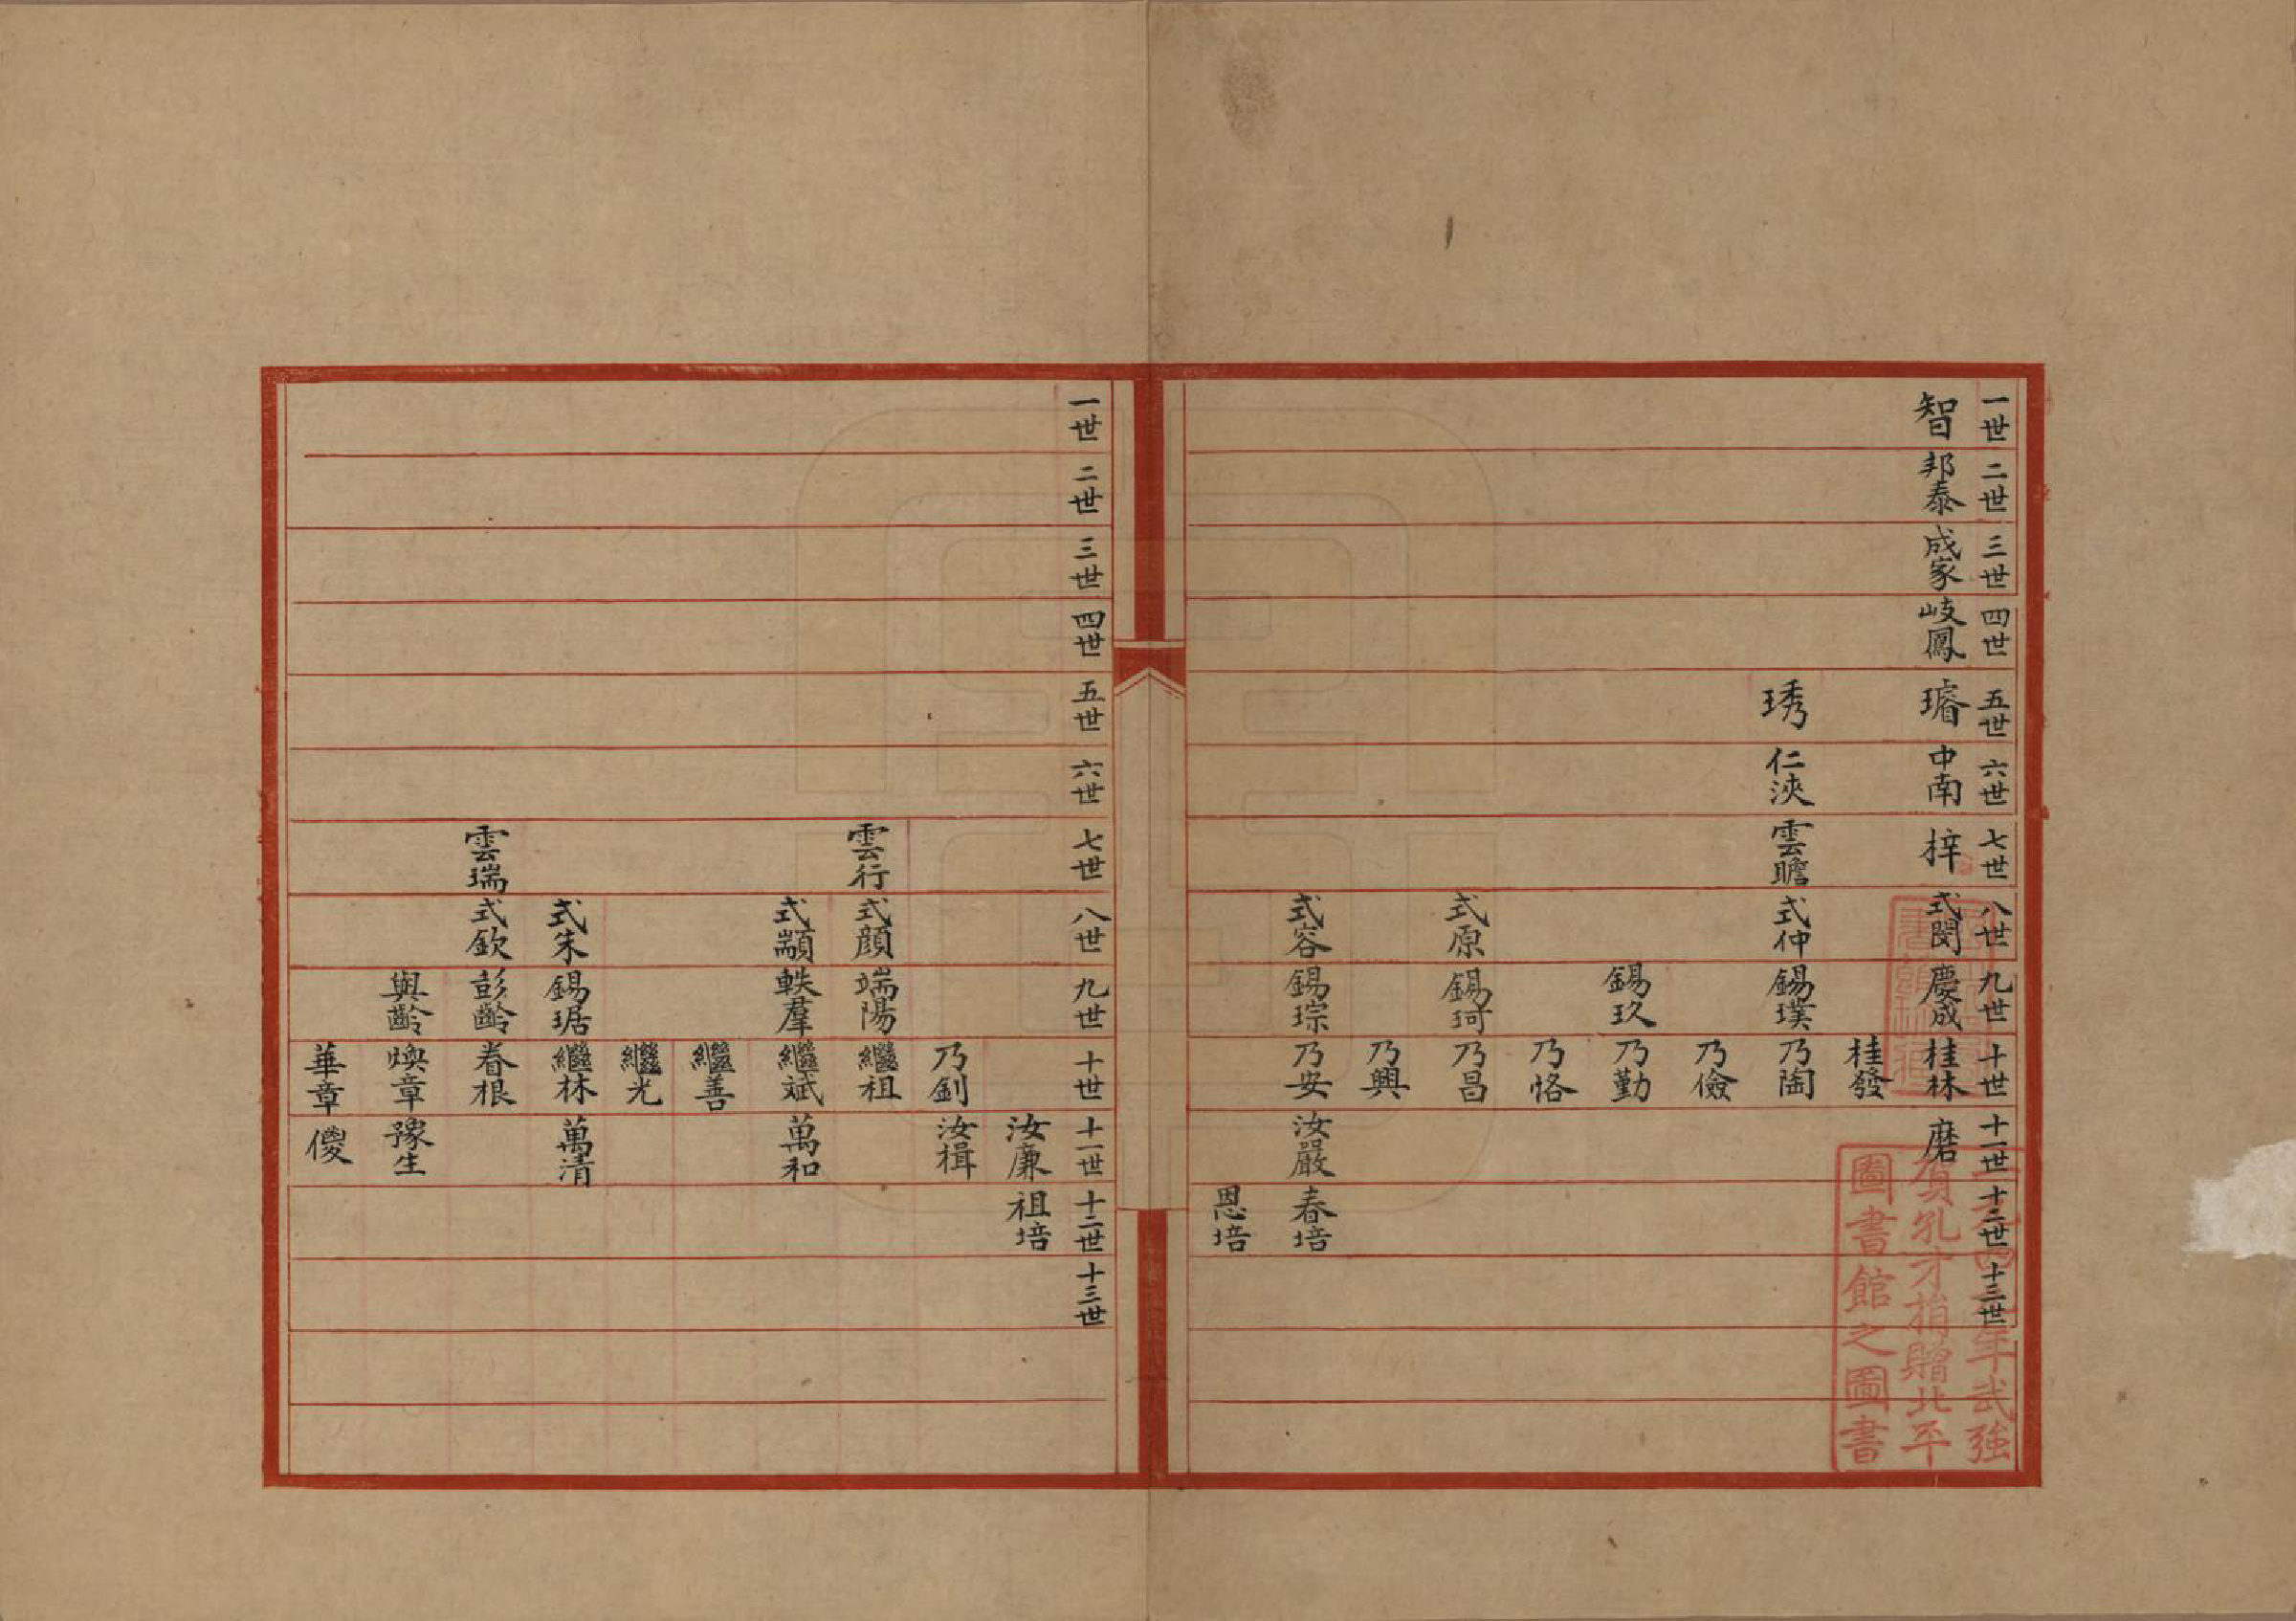 一世 二世 三世 四世 五世 六世 七世 八世 九世 十世 十一世 十二世 十三世
智 邦泰 成家 岐鳳 璿 中南 梓 式閔 慶成 桂林 磨
桂發
琇 仁浹 雲瞻 式仲 錫璞 乃陶
乃儉
錫玖 乃勤
乃恪
式原 錫珂 乃昌
乃興
式容 錫琮 乃安 汝嚴 春培
恩培
年武強
賀孔才捐贈北平
圖書館之圖書
一世 二世 三世 四世 五世 六世 七世 八世 九世 十世 十一世 十二世 十三世
汝廉 祖培
乃釗 汝楫
雲行 式顔 端陽 繼祖
式顓 軼羣 繼斌 萬和
繼善
繼光
式朱 錫琚 繼林 萬清
雲瑞 式欽 彭齡 眷根
與齡 煥章 豫生
華章 儍